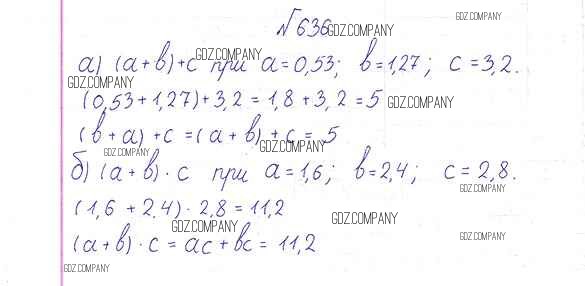 №636
а) (a+b)+c при a=0,53; b=1,27; c=3,2.
(0,53+1,27)+3,2 = 1,8+3,2 = 5
(b+a)+c = (a+b)+c = 5
б) (a+b)·c при a=1,6; b=2,4; c=2,8.
(1,6+2,4)·2,8 = 11,2
(a+b)·c = ac+bc = 11,2
GDZ.COMPANY
GDZ.COMPANY
GDZ.COMPANY
GDZ.COMPANY
GDZ.COMPANY
GDZ.COMPANY
GDZ.COMPANY
GDZ.COMPANY
GDZ.COMPANY
GDZ.COMPANY
GDZ.COMPANY
GDZ.COMPANY